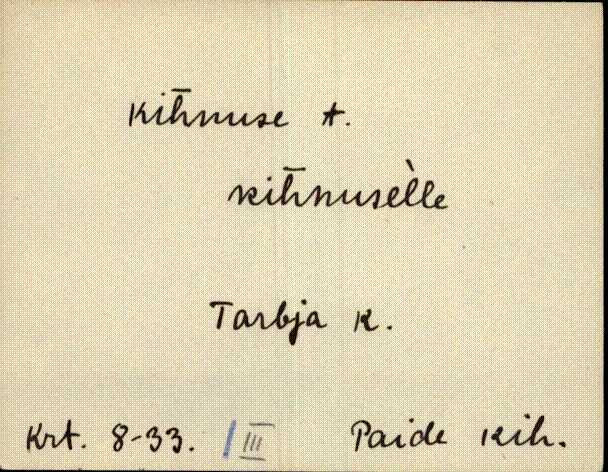 Kihnuse t.
kihnusèlle
Tarbja k.
Krt. 8-33. / III Paide kih.